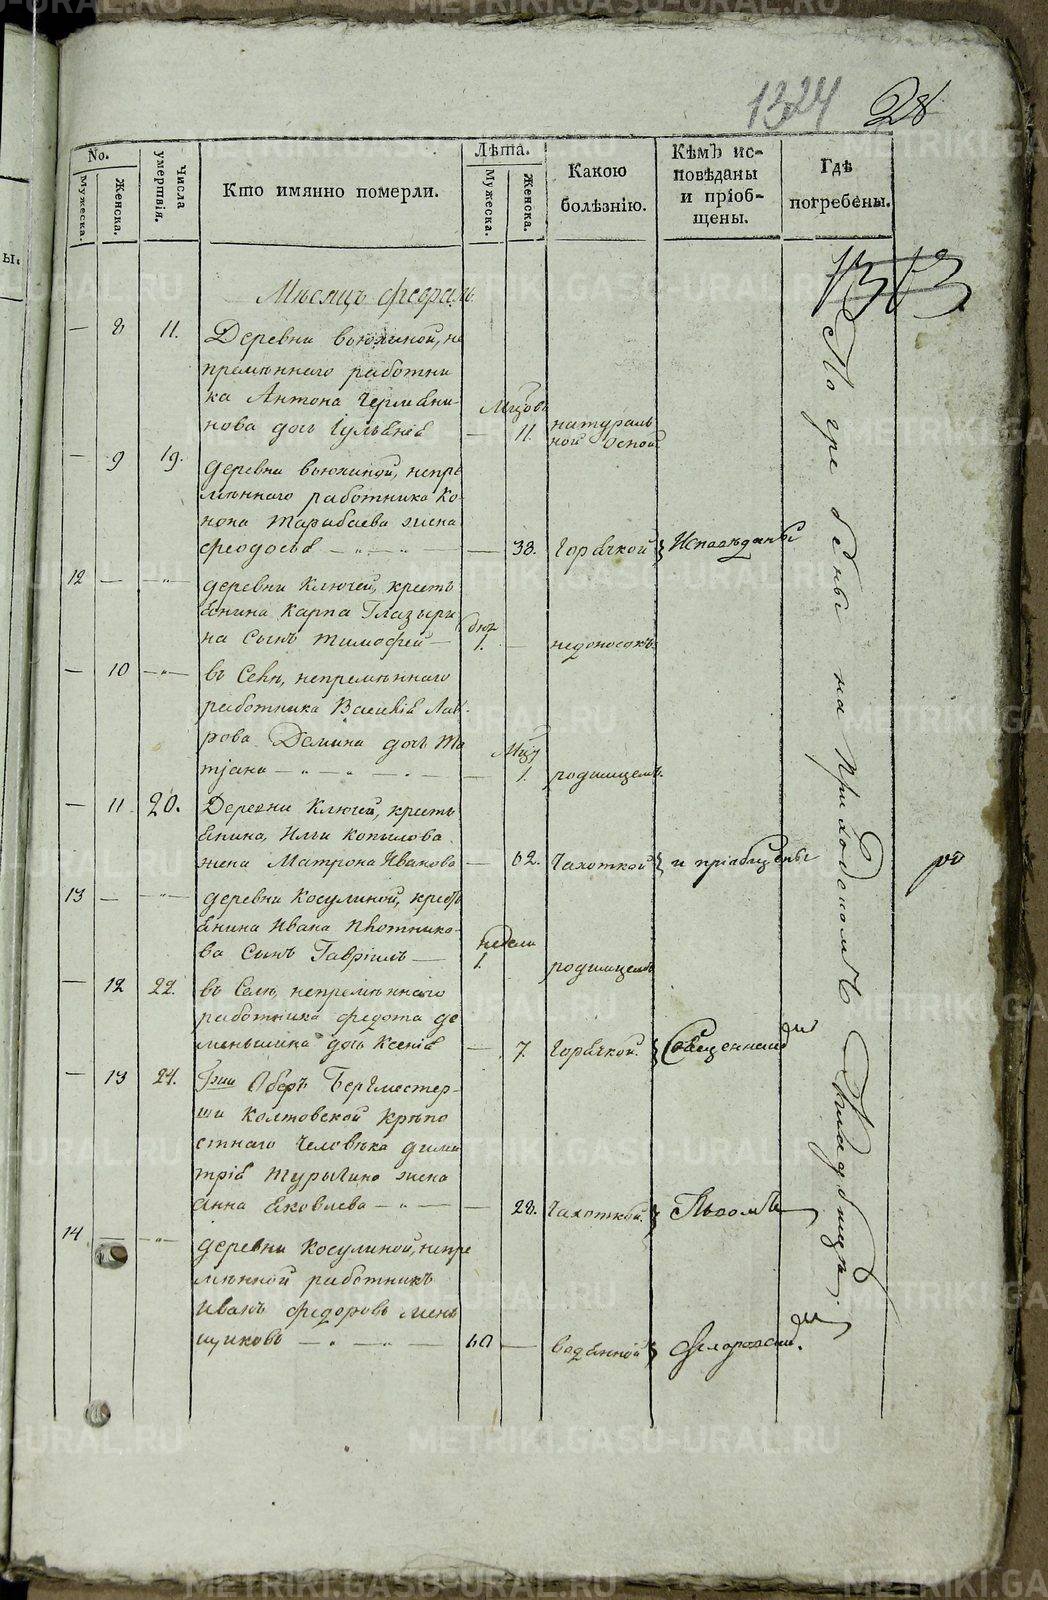 1324 28
No.
Мужеска.
Женска.
Числа умертвія.
Кто имянно померли.
Лѣта.
Мужеска.
Женска.
Какою
болѣзнію.
Кѣмъ ис-
повѣданы
и пріоб-
щены.
Гдѣ
погребены.
Мѣсяцъ февраль
— 8 11. Деревни Вьюхиной, не
премѣннаго работни
ка Антона
нова дочь — 11. натураль
ной оспой
— 9 19. деревни Вьюхиной, непре
мѣннаго работника Ко
нона Тарабаева жена
Феодосья — — 38. Горячкой Исповѣданы
12 — деревни Ключей, крест
янина Карпа Глазыри
на сынъ Тимофей — 1. — недоносокъ
— 10 въ Селѣ, непремѣннаго
работника Василья Лав
рова Демина дочь Та
тіана — — 1. родимцемъ
— 11 20. Деревни Ключей, крест
янина, Ильи Копылова
жена Матрона Иванова — 62. Чахоткой и пріобщены
13 — деревни Косулиной, крест
янина Ивана Плотнико
ва сынъ Гавріилъ — недели
1. родимцемъ
— 12 22. въ Селѣ, непремѣннаго
работника Федота Де
меньшина дочь Ксенія — 7. Горячкой. Священникомъ
— 13 24. Гжи Оберъ Бергмейстер-
ши Колтовской крѣпо
стнаго человѣка Дими
трія Турыгина жена
Анна Яковлева — — 28. Чахоткой.
14 — деревни Косулиной, непре
мѣнной работникъ
Иванъ Федоровъ Мень
щиковъ — 60 — водяной
Погребены на приходскомъ кладбище.
METRIKI.GASO-URAL.RU